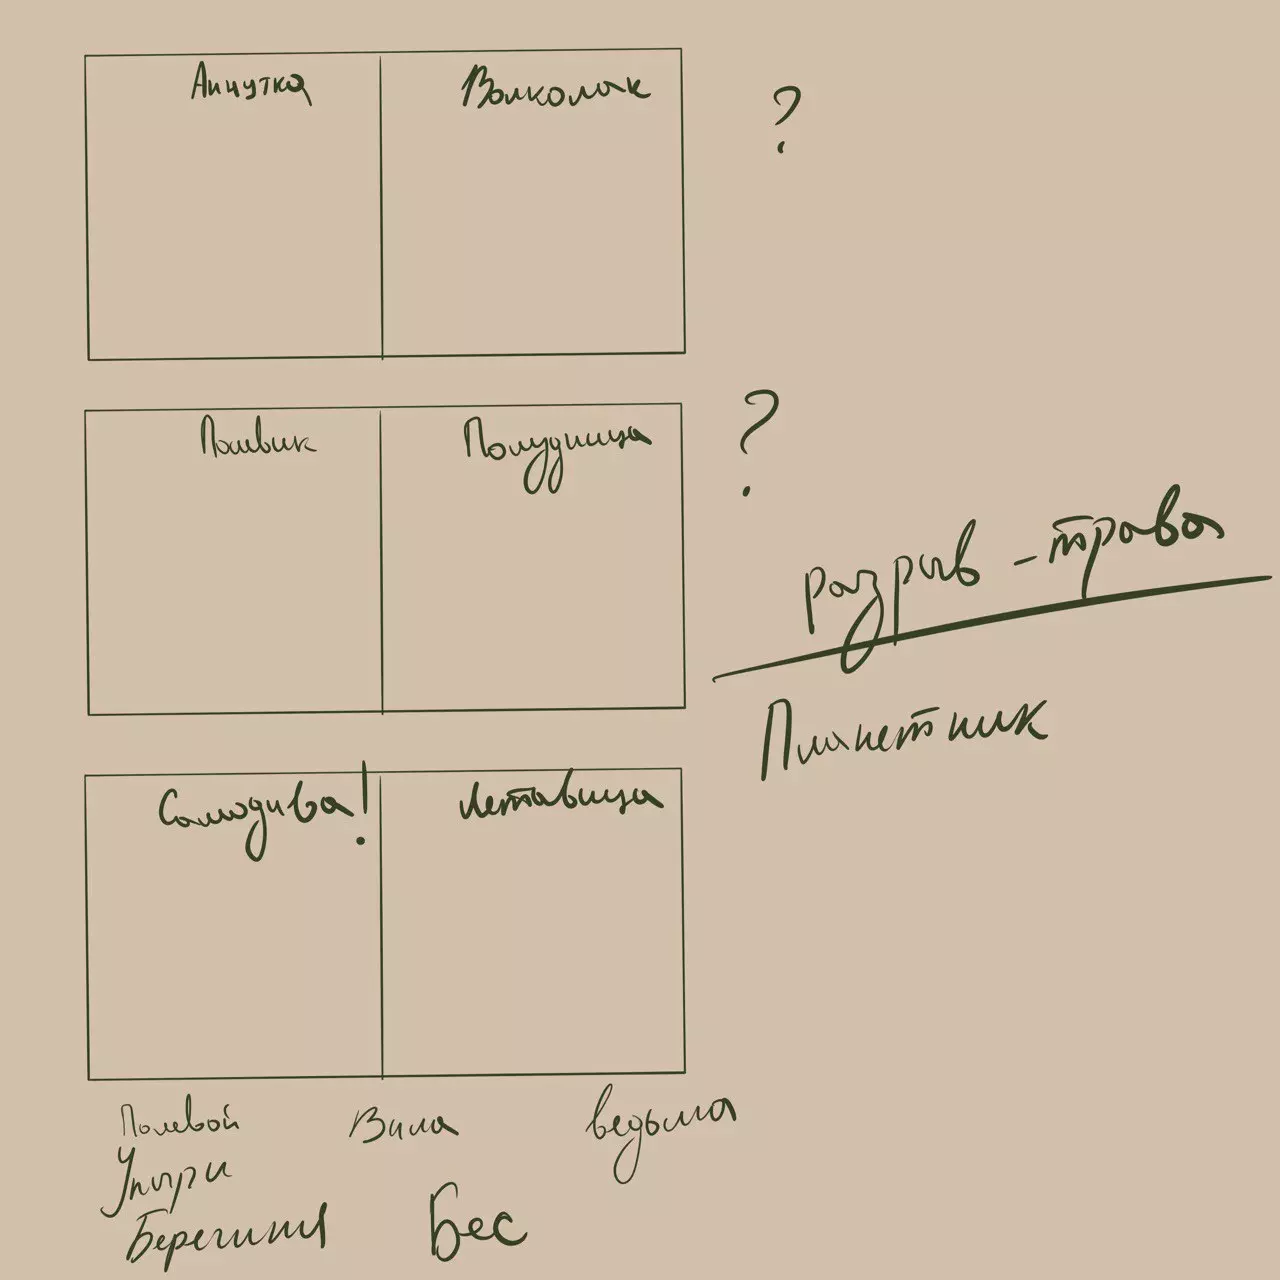 Анчутка Волколак ?
Полевик Полудница ?
разрыв-трава
Планетник
Самодива! Летавица
Полевой Вила ведьма
Упыри
Берегиня Бес